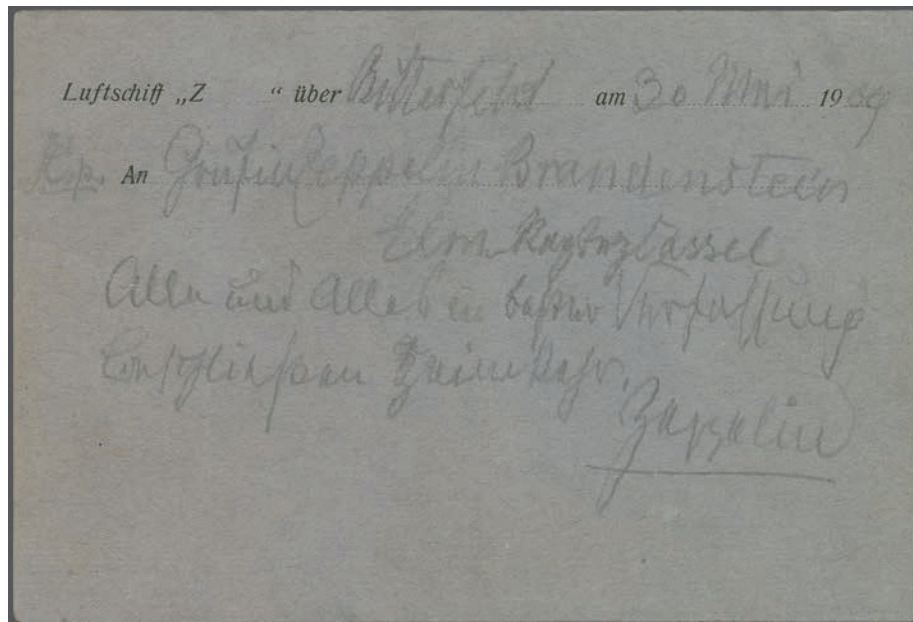 Luftschiff „Z “ über Bitterfeld am 30 Mai 1909
An Gräfin Zeppelin Brandenstein
Elm Cassel
Alle und Alles in bester Verfassung
beschließen Heimkehr.
Zeppelin